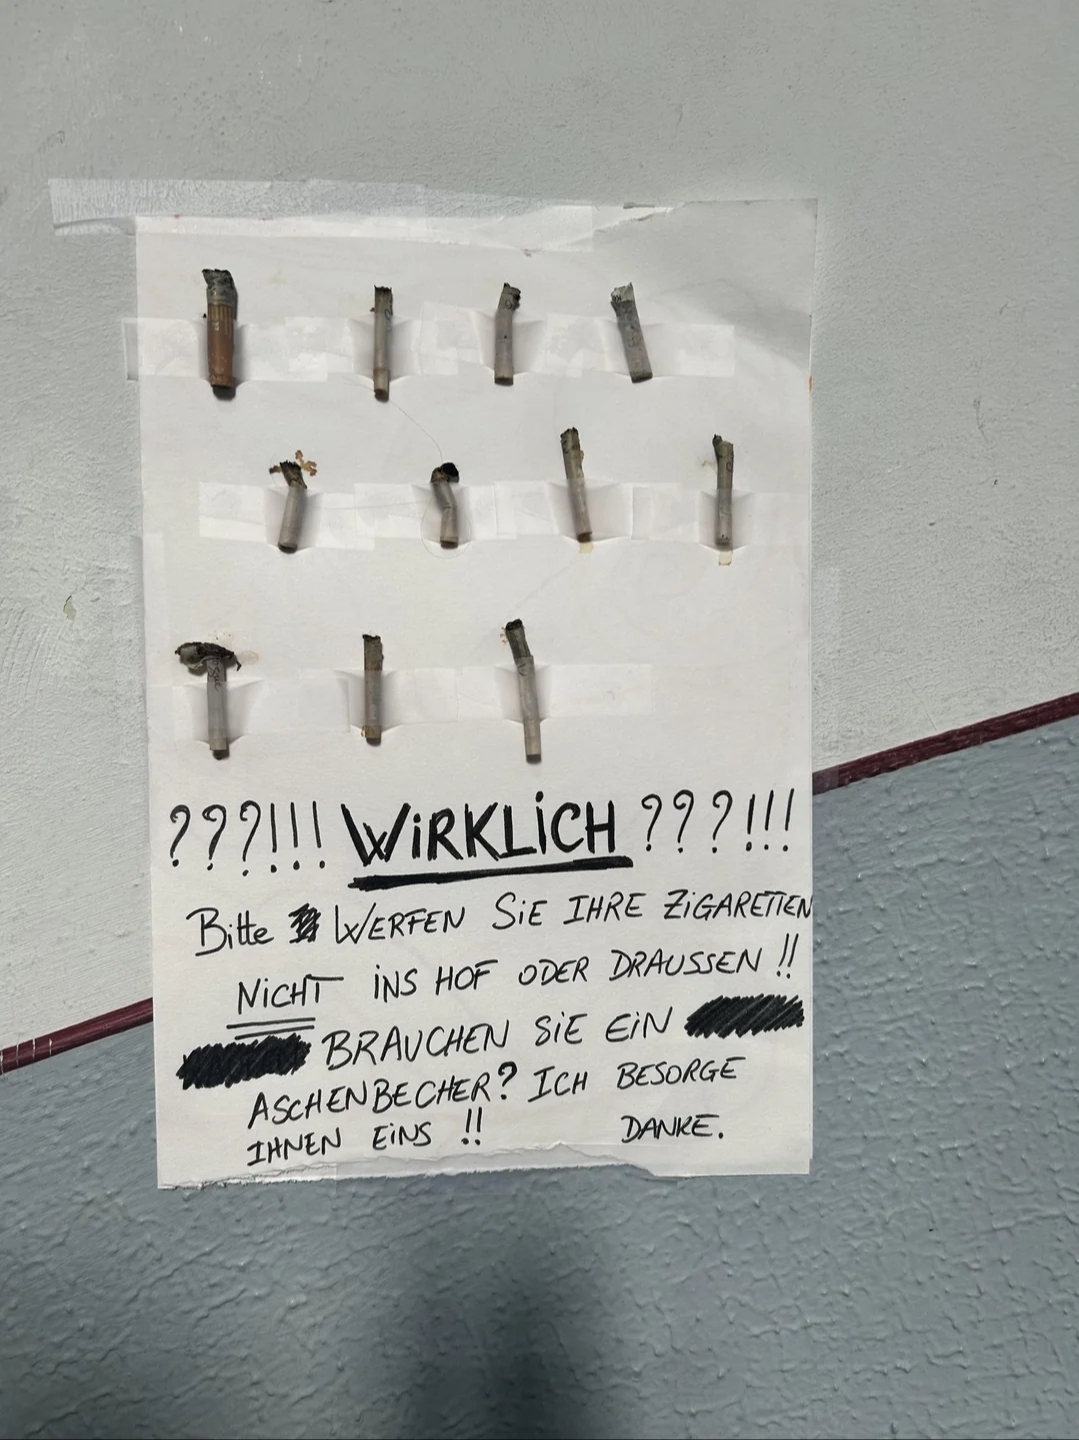 ???!!! WIRKLICH ???!!!
Bitte WERFEN SIE IHRE ZIGARETTEN
NICHT INS HOF ODER DRAUSSEN !!
BRAUCHEN SIE EIN
ASCHENBECHER? ICH BESORGE
IHNEN EINS !! DANKE.